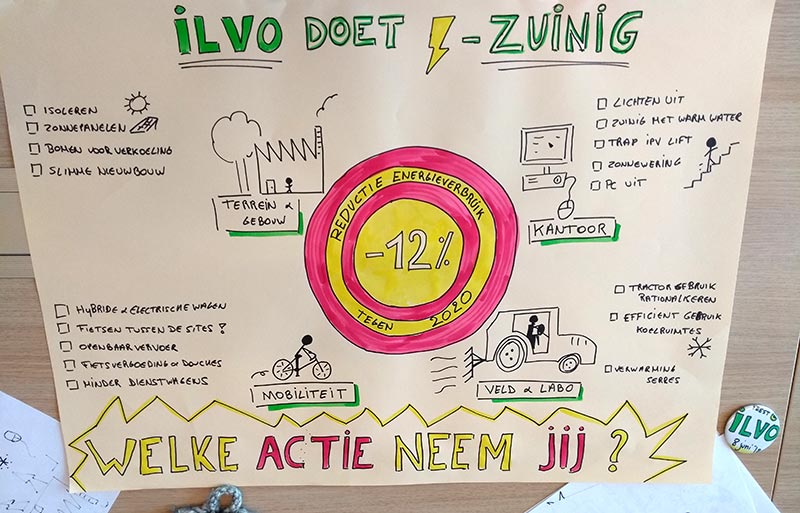 ILVO DOET -ZUINIG
ISOLEREN
ZONNEPANELEN
BOMEN VOOR VERKOELING
SLIMME NIEUWBOUW
TERREIN &
GEBOUW
LICHTEN UIT
ZUINIG MET WARM WATER
TRAP IPV LIFT
ZONNEWERING
PC UIT
KANTOOR
REDUCTIE ENERGIEVERBRUIK
-12%
TEGEN 2020
HYBRIDE & ELECTRISCHE WAGEN
FIETSEN TUSSEN DE SITES ?
OPENBAAR VERVOER
FIETSVERGOEDING & DOUCHES
MINDER DIENSTWAGENS
MOBILITEIT
TRACTOR GEBRUIK
RATIONALISEREN
EFFICIENT GEBRUIK
KOELRUIMTES
VERWARMING
SERRES
VELD & LABO
WELKE ACTIE NEEM JIJ ?
ILVO